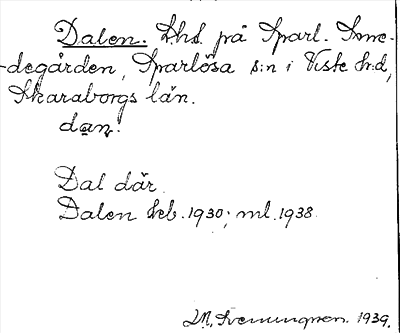 Dalen. Lhs. på Sparl. Sme-
degården, Sparlösa s:n i Viste h:d,
Skaraborgs län.
dạn.
Dal där.
Dalen kb. 1930; ml. 1938.
1939.